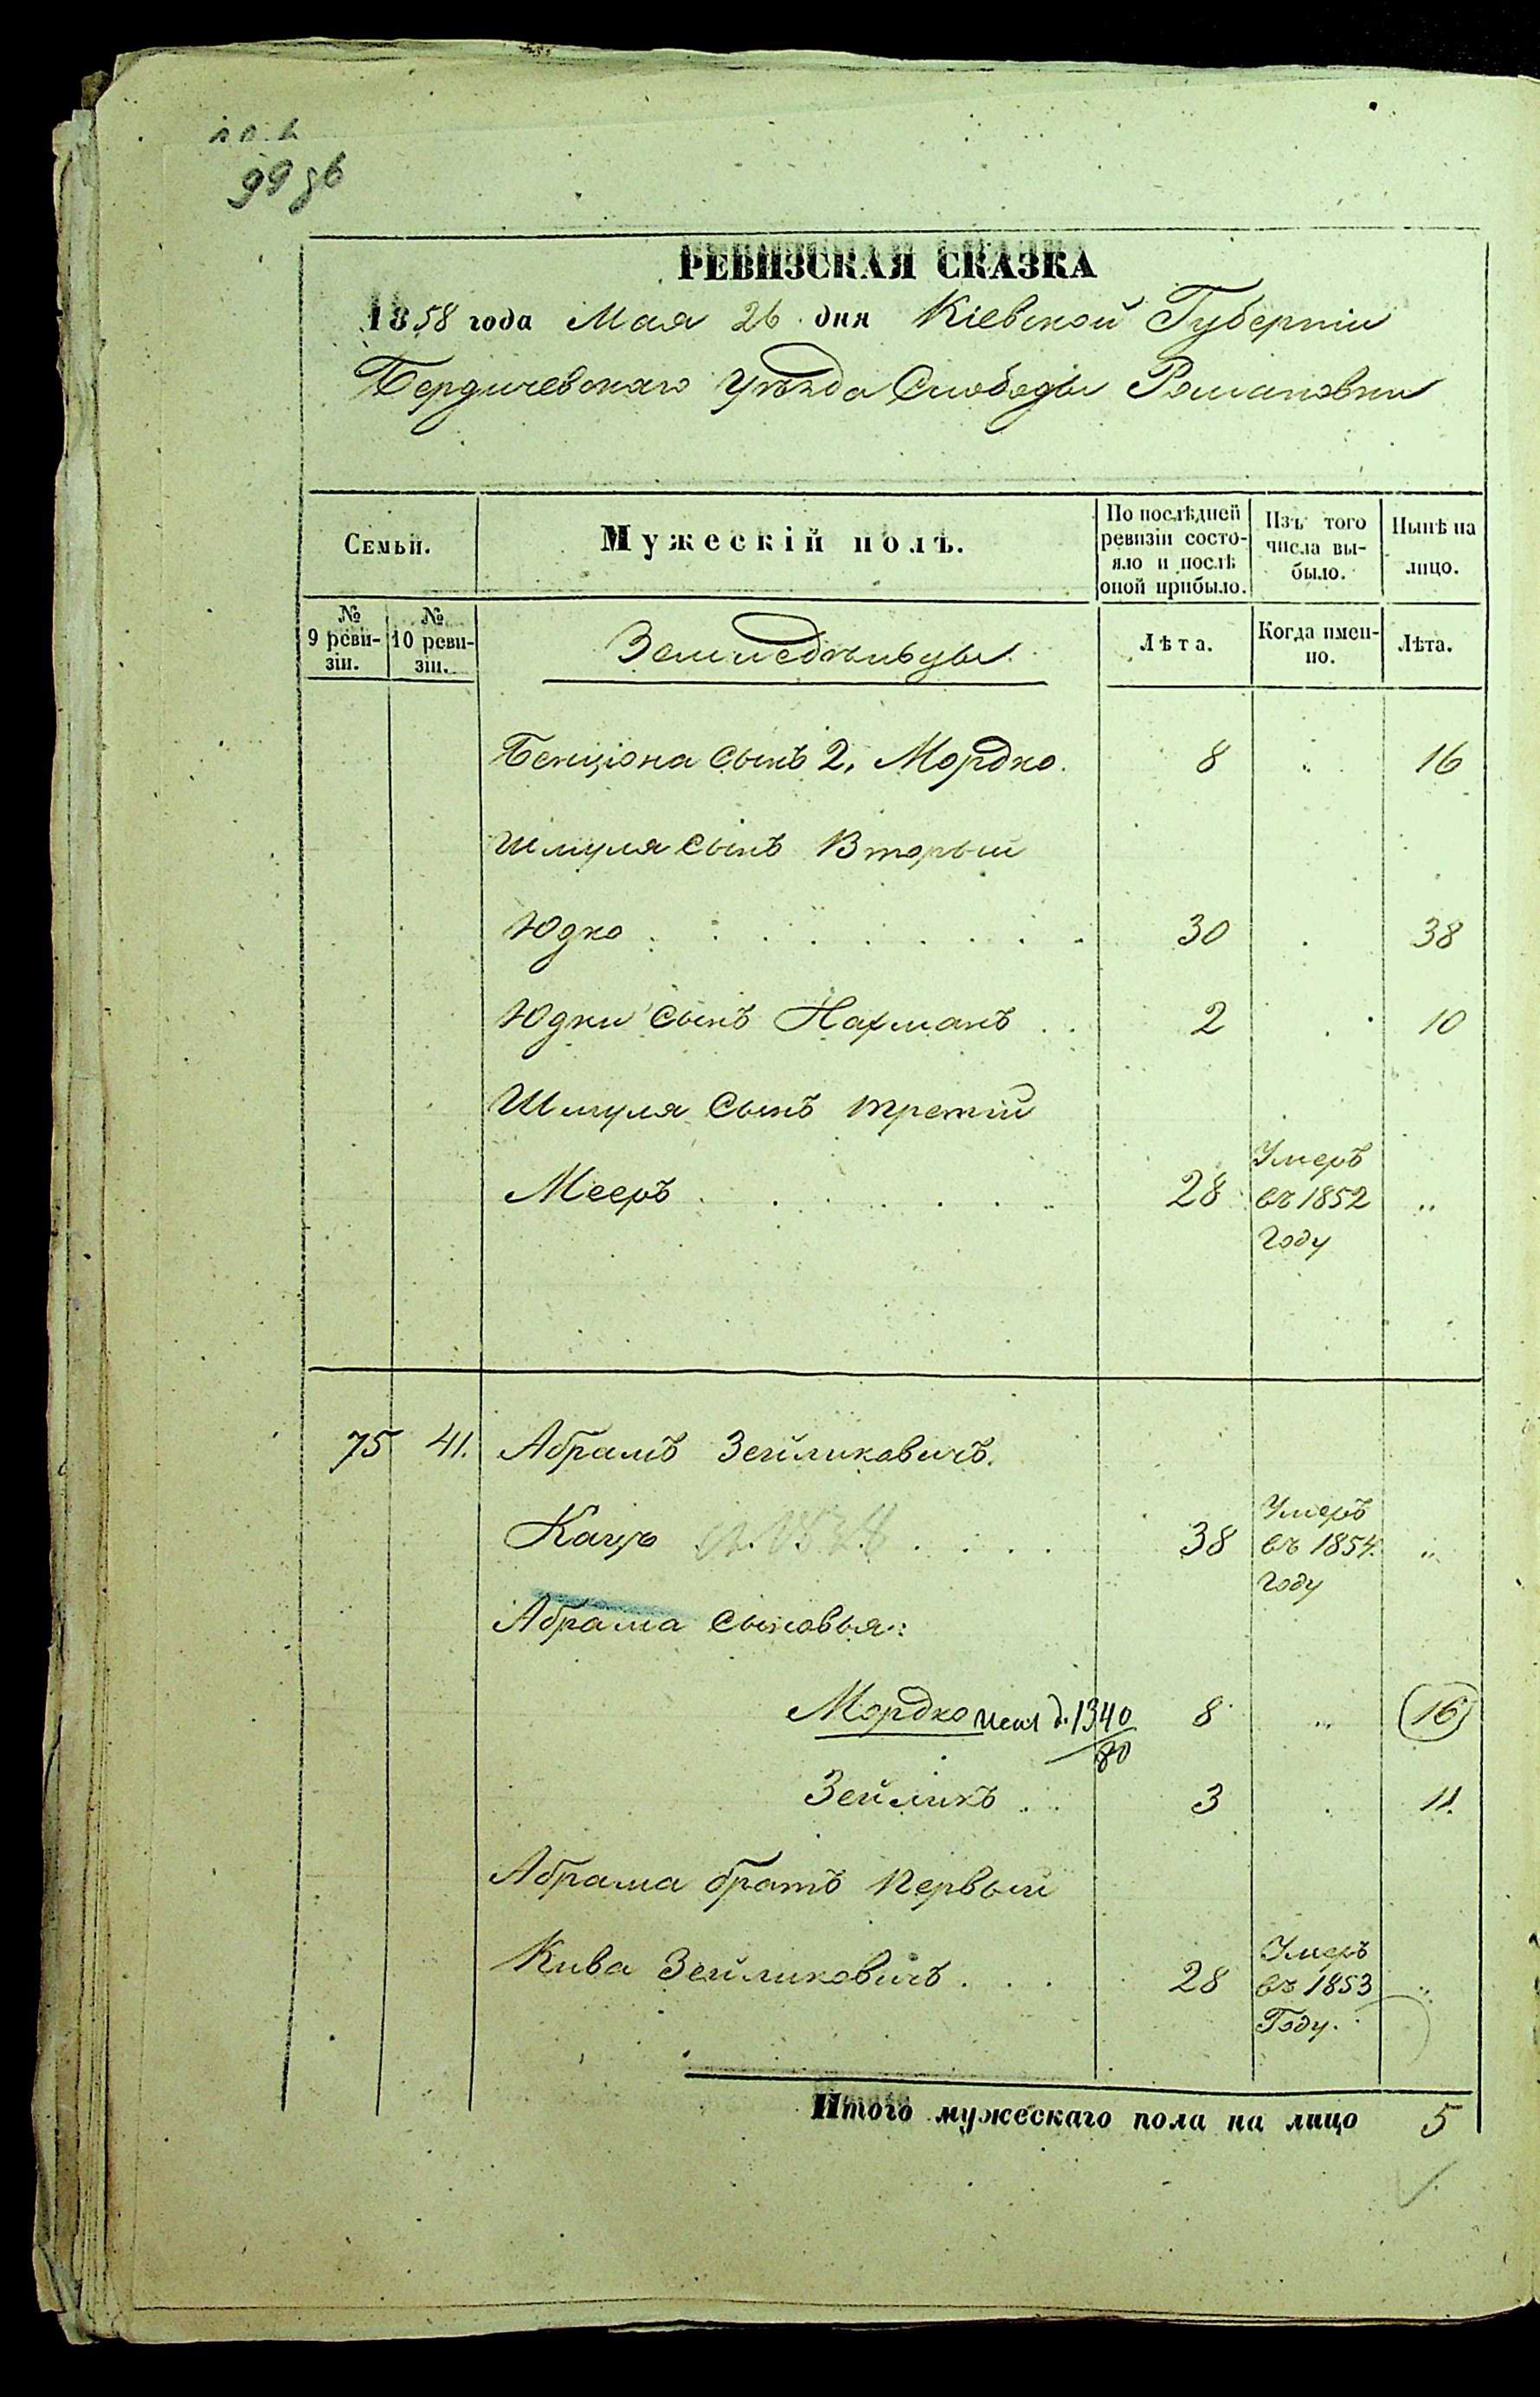 99 об
РЕВИЗСКАЯ СКАЗКА
1858 года Мая 26 дня Кіевской Губерніи
Бердичевскаго Уѣзда Слободы Романовки
Семьи.
Мужескій полъ.
По послѣдней ревизіи состо-
яло и послѣ
оной прибыло.
Изъ того
числа вы-
было.
Нынѣ на
лицо.
№
9 реви-
зіи.
№
10 реви-
зіи.
Земледѣльцы
Лѣта.
Когда имен-
но.
Лѣта.
Бенціона сынъ 2, Мордко. 8 16
Шмуля сынъ Вторый
Юдко 30 38
Юдки сынъ Нахманъ 2 10
Шмуля сынъ третій
Мееръ 28 Умеръ
въ 1852
году
75 41. Абрамъ Зейликовичъ.
Кацъ 38 Умеръ
въ 1854.
году
Абрама сыновья:
Мордко 1340 8 16
80
Зейликъ 3 11.
Абрама братъ первый
Кива Зейликовичъ 28 Умеръ
въ 1853
Году.
Итого мужескаго пола на лицо 5